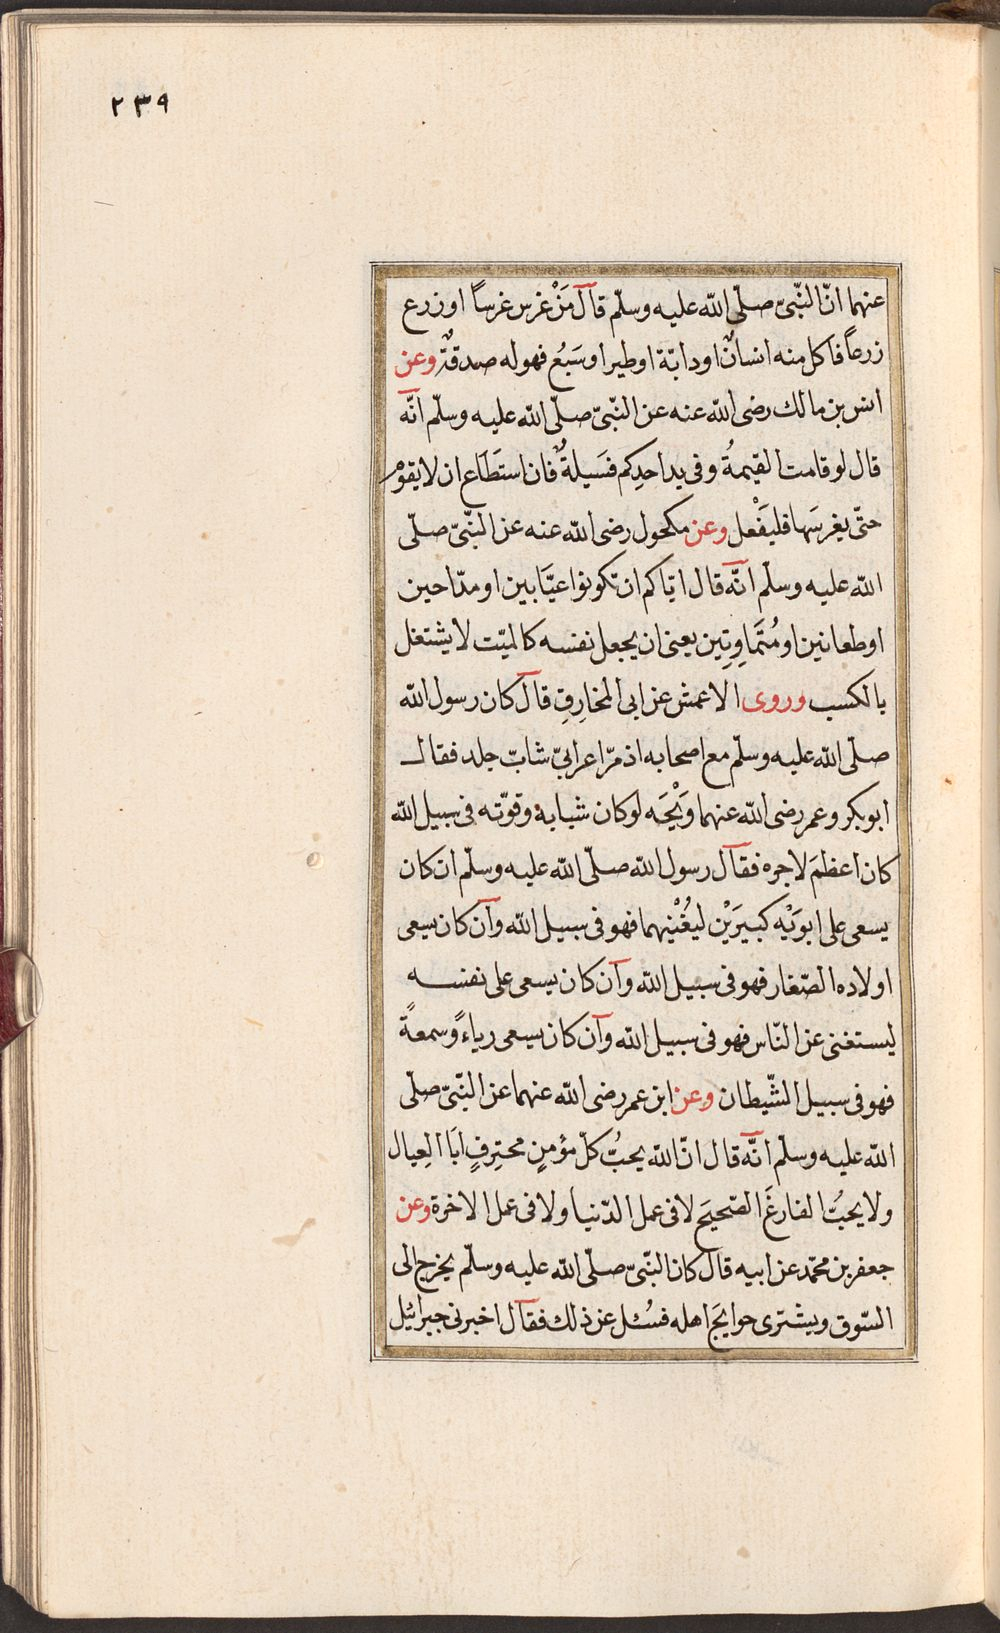 ٢٣٩
عنهما انّ النّبىّ صلّى الله عليه وسلّم قال مَنْ غرس غرسًا او زرع
زرعًا فاكل منه انسانٌ او دابّة او طير او سَبُع فهو له صدقةٌ وعن
انس بن مالك رضى الله عنه عن النّبىّ صلّى الله عليه وسلّم انّه
قال لو قامت القيمةُ وفى يد احدِكم فسَيلةٌ فان استطَاع ان لا يقوم
حتّى يغرسَها فليَفْعل وعن مكحول رضى الله عنه عن النّبىّ صلّى
الله عليه وسلّم انّه قال ايّاكم ان تكونوا عيَّابين او مدّاحين
او طعانين او مُتَماوِتِين يعنى ان يجعل نفسه كالميّت لا يشتغل
بالكسب وروى الاعمش عن ابى المخارِقِ قال كان رسول الله
صلّى الله عليه وسلّم مع اصحابه اذ مرّ اعرابىّ شابّ جلد فقال
ابو بكر وعمر رضى الله عنهما وَيْحَه لو كان شبابه وقوّته فى سبيل الله
كان اعظمَ لاجره فقال رسول الله صلّى الله عليه وسلّم ان كان
يسعى على ابويْه كبيرَيْن ليُغْنيهما فهو فى سبيل الله وان كان يسعى
اولاده الصّغار فهو فى سبيل الله وان كان يسعى على نفسه
ليستغنى عن النّاس فهو فى سبيل الله وان كان يسعى رياءً وسمعةً
فهو فى سبيل الشّيطان وعن ابن عمر رضى الله عنهما عن النّبىّ صلّى
الله عليه وسلّم انّه قال انّ الله يحبُّ كلّ مؤمنٍ محترِفٍ ابَا العِيال
ولا يحبُّ الفارغَ الصّحيحَ لا فى عمل الدّنيا ولا فى عمل الاخرة وعن
جعفر بن محمّد عن ابيه قال كان النّبىّ صلّى الله عليه وسلّم يخرج الى
السّوق ويشترى حوايجَ اهله فسُئل عن ذلك فقال اخبرنى جبرائيل